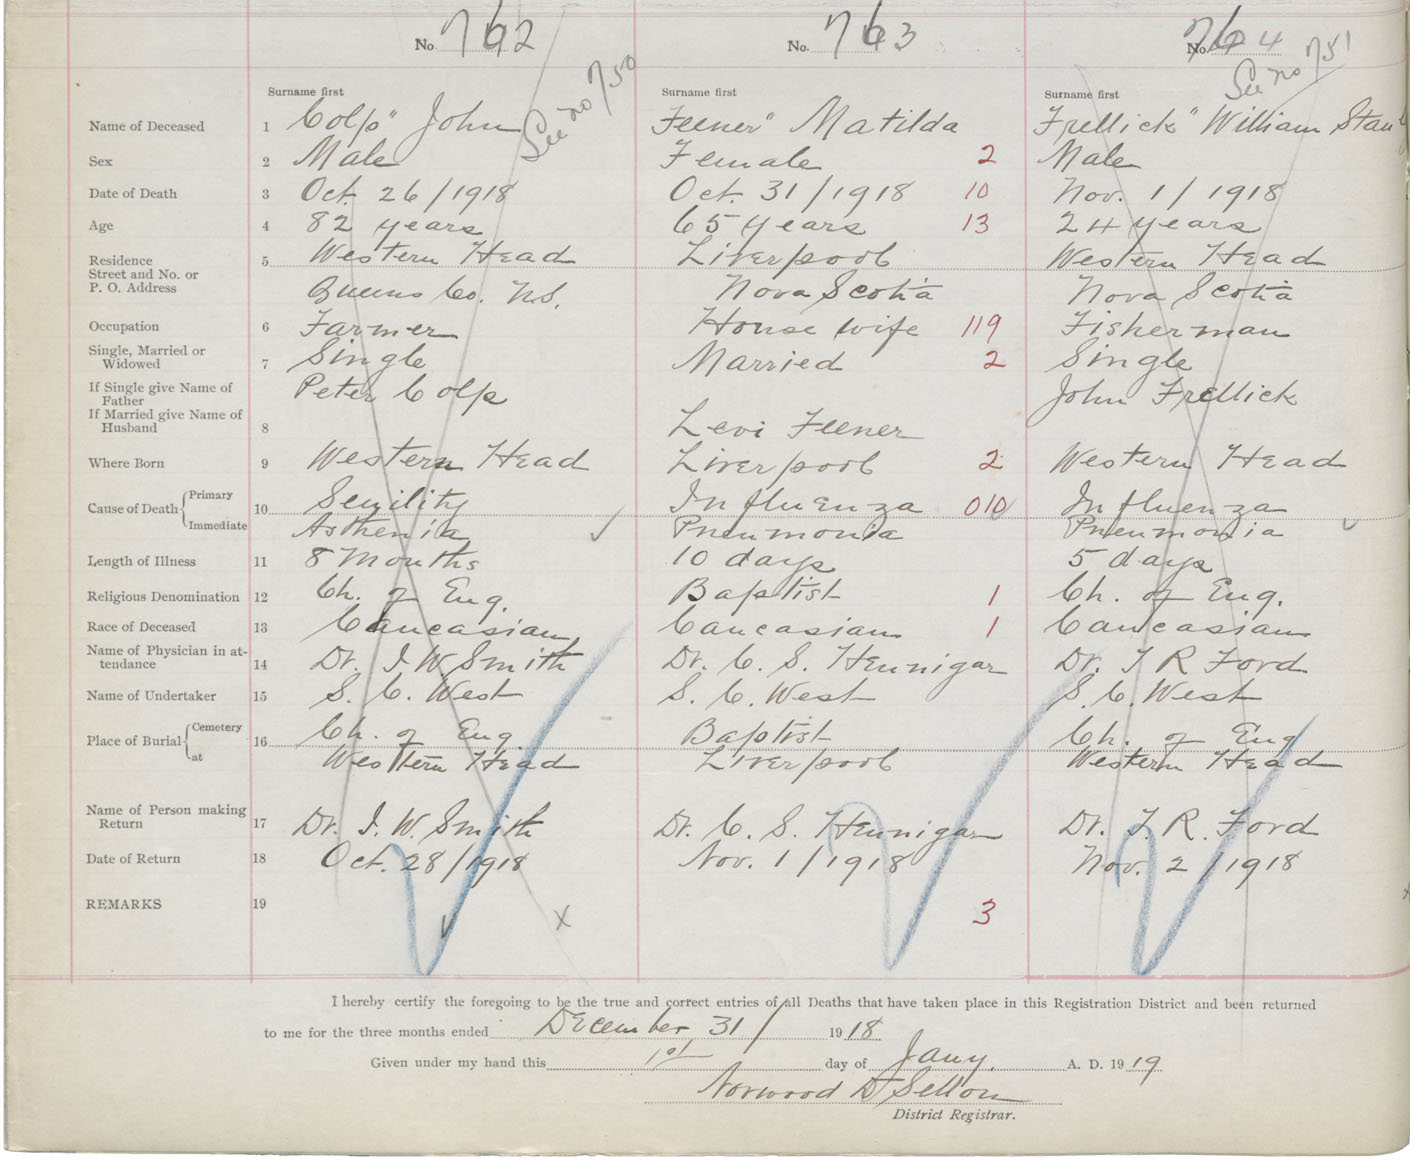 No. 762 No. 763 No. 764
See no 750 See no 751
Surname first Surname first Surname first
Name of Deceased 1 Colp" John Feener" Matilda Frellick" William Stan
Sex 2 Male Female 2 Male
Date of Death 3 Oct. 26/1918 Oct. 31/1918 10 Nov. 1/1918
Age 4 82 years 65 years 13 24 years
Residence Western Head Liverpool Western Head
Street and No. or 5
P. O. Address Queens Co. N.S. Nova Scotia Nova Scotia
Occupation 6 Farmer House wife 119 Fisherman
Single, Married or
Widowed 7 Single Married 2 Single
If Single give Name of
Father Peter Colp John Frellick
If Married give Name of
Husband 8 Levi Feener
Where Born 9 Western Head Liverpool 2 Western Head
Cause of Death Primary 10 Senility Influenza 010 Influenza
Immediate Asthenia Pneumonia Pneumonia
Length of Illness 11 8 Months 10 days 5 days
Religious Denomination 12 Ch. of Eng. Baptist 1 Ch. of Eng.
Race of Deceased 13 Caucasian Caucasian 1 Caucasian
Name of Physician in at-
tendance 14 Dr. I. W Smith Dr. C. S. Hennigar Dr. T R Ford
Name of Undertaker 15 S. C. West S. C. West S. C. West
Place of Burial Cemetery 16 Ch. of Eng. Baptist Ch. of Eng
at Western Head Liverpool Western Head
Name of Person making
Return 17 Dr. I. W. Smith Dr. C. S. Hennigar Dr. T. R. Ford
Date of Return 18 Oct. 28/1918 Nov. 1/1918 Nov. 2/1918
REMARKS 19 x 3
I hereby certify the foregoing to be the true and correct entries of all Deaths that have taken place in this Registration District and been returned
to me for the three months ended December 31/ 1918
Given under my hand this 1st day of Jany. A. D. 1919
Norwood D Sellon
District Registrar.